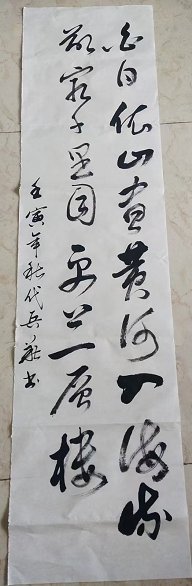 白日依山尽黄河入海流
欲穷千里目更上一层楼
壬寅年秋代兵书